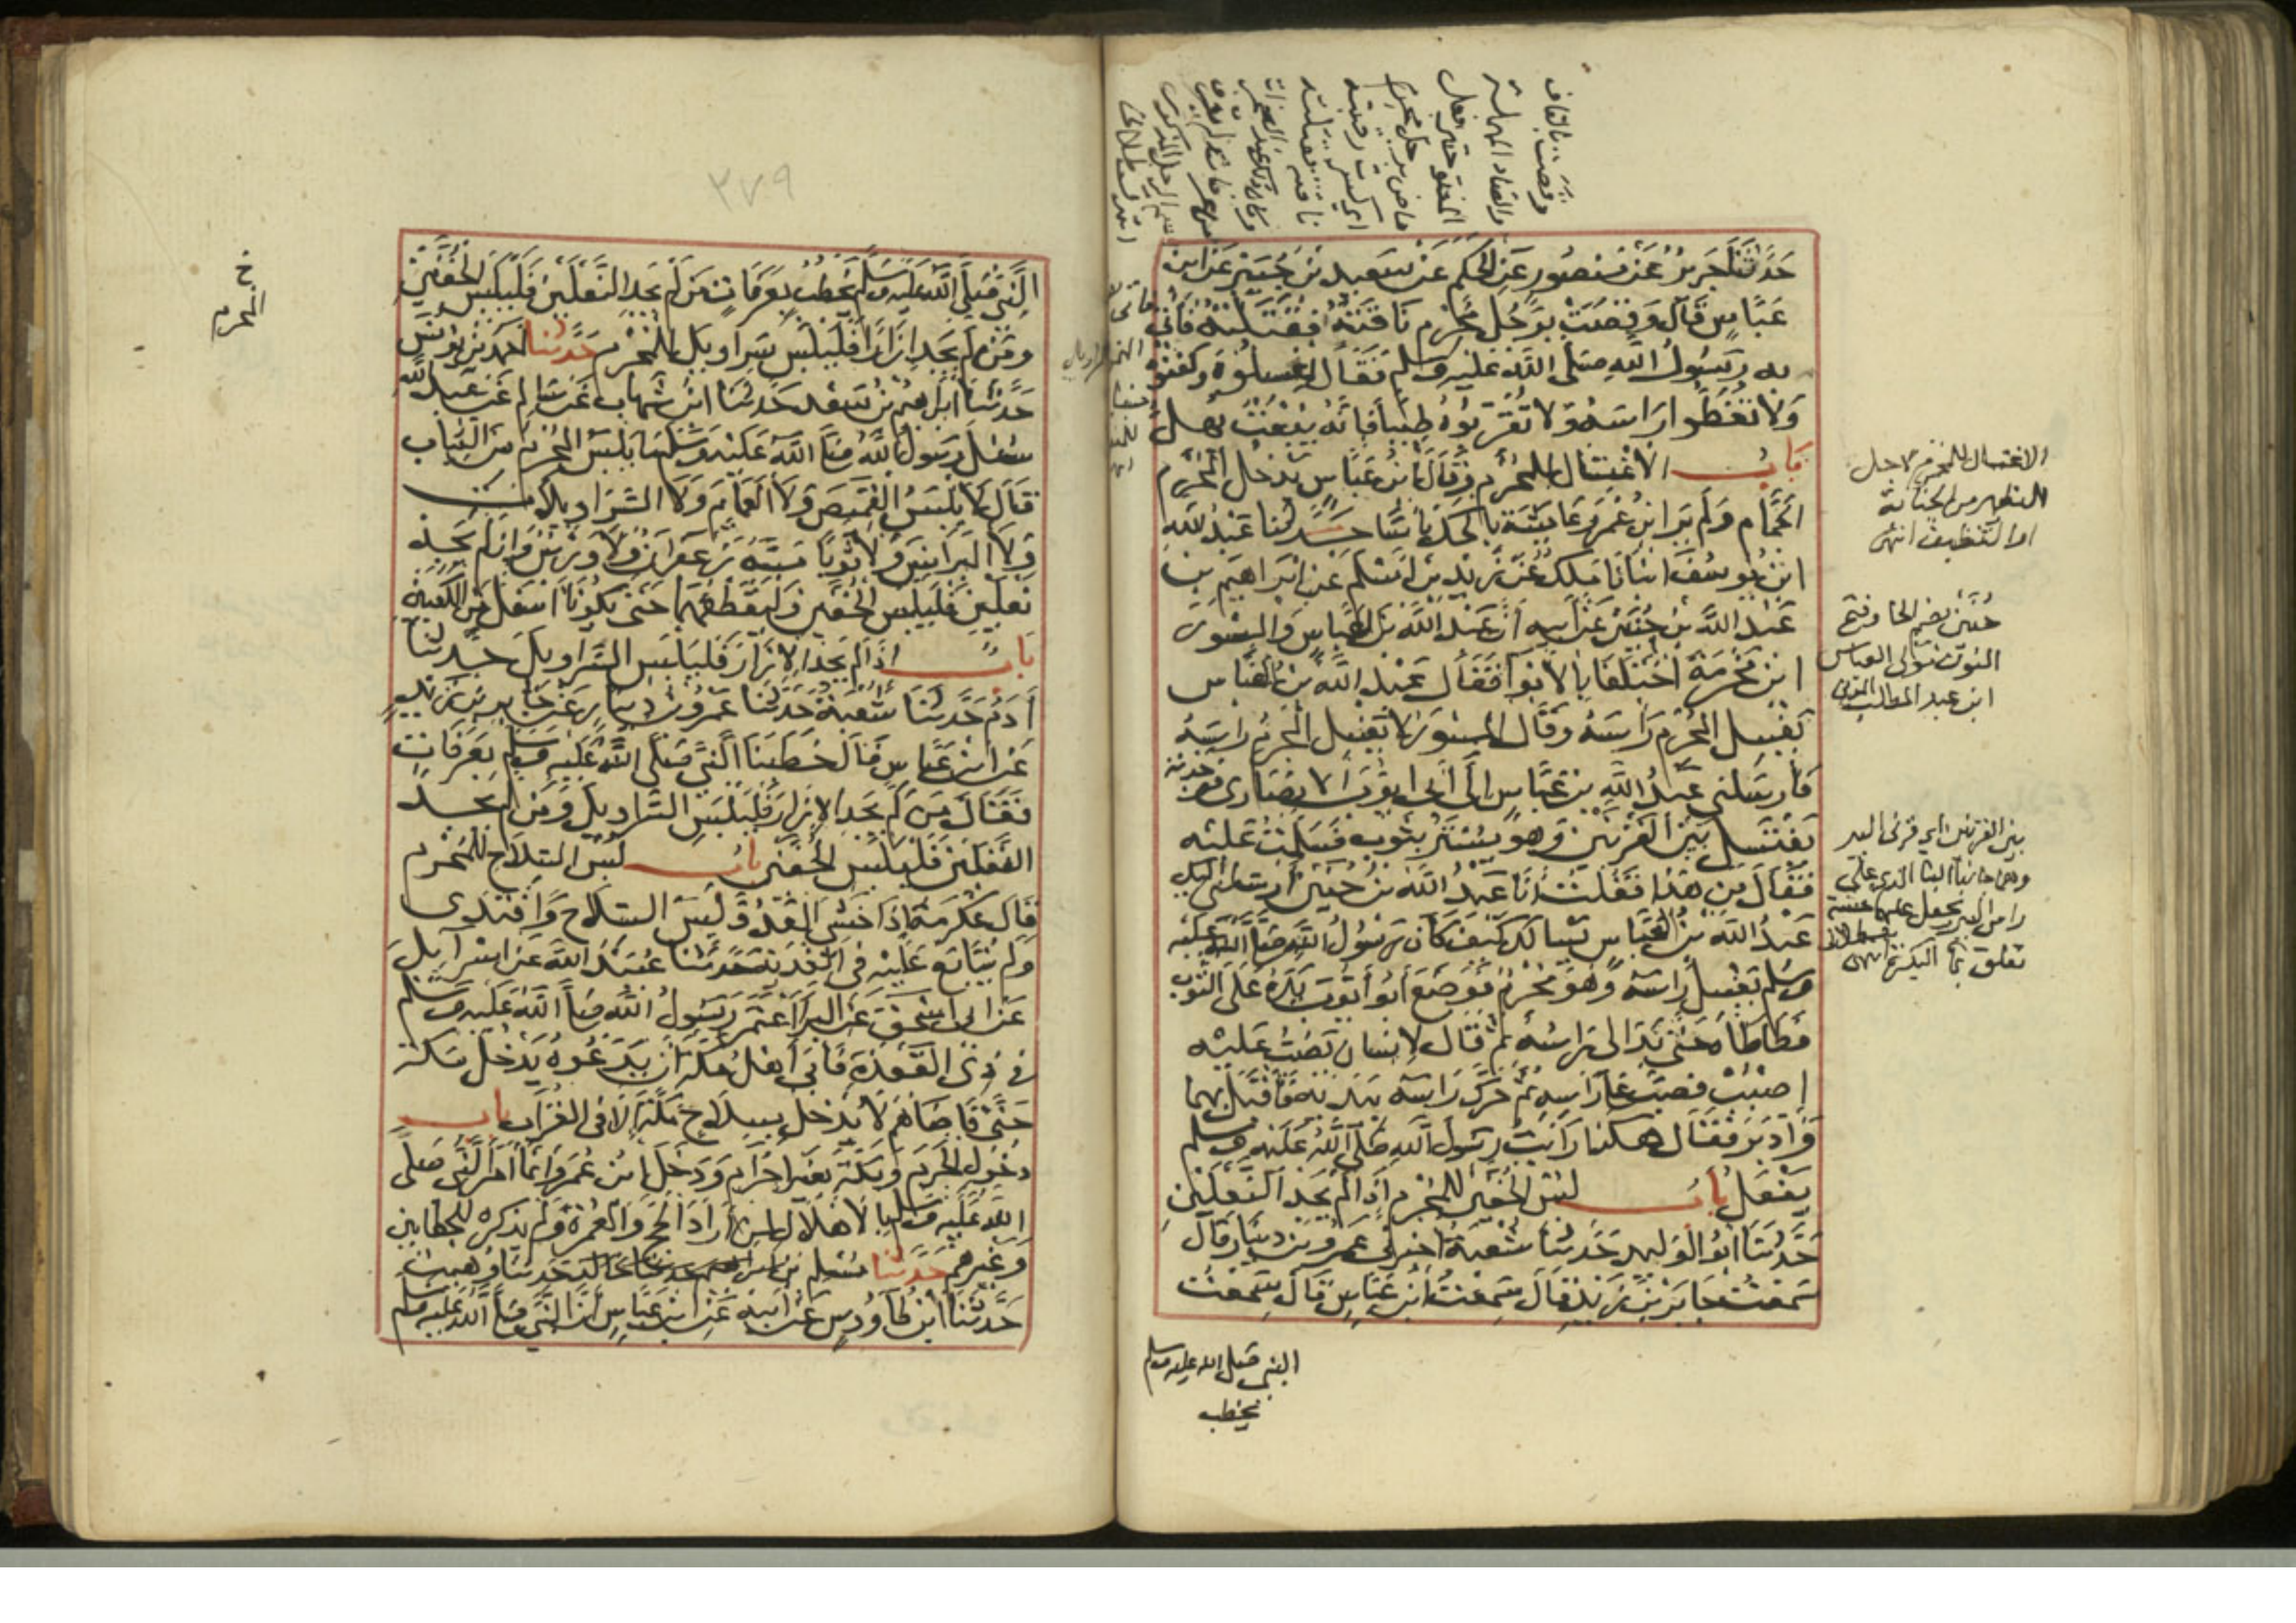 حَدَّثَنَا جَرِيرٌ عَنْ مَنْصُورٍ عَنِ الحَكَمِ عَنْ سَعِيدِ بْنِ جُبَيْرٍ عَنِ ابْنِ
عَبَّاسٍ قَالَ وَقَصَتْ بِرَجُلٍ مُحْرِمٍ نَاقَتُهُ فَقَتَلَتْهُ فَأُتِيَ
به رَسُولُ اللَّهِ صَلَّى اللَّهُ عَلَيْهِ وَسَلَّمَ فَقَالَ اغْسِلُوهُ وَكَفِّنُوهُ
وَلَا تُغَطُّوا رَاسَهُ وَلَا تُقَرِّبُوهُ طِيبًا فَإِنَّهُ يُبْعَثُ يُهِلُّ
بَابُ الاغْتِسَالِ للمُحْرِمِ وَقَالَ ابْنُ عَبَّاسٍ يَدْخُلُ المُحْرِمُ
الحَمَّامَ وَلَمْ يَرَ ابْنُ عُمَرَ وَعَايِشَةُ بِالحَكِّ بَاسًا حَدَّثَنَا عَبْدُ اللَّهِ
ابْنُ يُوسُفَ انْبَأنَا مَلِكٌ عَنْ زَيْدِ بْنِ اسْلَمَ عَنْ ابْرَاهِيمَ بن
عَبْدِ اللَّهِ بْنِ حُنَيْنٍ عَنْ أَبِيهِ أَنَّ عَبْدَ اللَّهِ بْنَ العَبَّاسِ وَالمِسْوَرَ
ابْنَ مَخْرَمَةَ اخْتَلَفَا بِالأَبْوَا فَقَالَ عَبْدُ اللَّهِ بْنُ العَبَّاسِ
يَغْسِلُ المُحْرِمُ رَاسَهُ وَقَالَ المِسْوَرُ لا يَغْسِلُ المُحْرِمُ رَاسَهُ
فَأَرْسَلَنِي عَبْدُ اللَّهِ بْنُ عَبَّاسٍ إِلَى أَبِي ايُّوبَ الأَنْصَارِي فوجدته
يَغْتَسِلُ بَيْنَ القَرْنَيْنِ وَهُوَ يُسْتَرُ بِثَوْبٍ فَسَلَّمْتُ عَلَيْهِ
فَقَالَ مَنْ هَذَا فَقُلْتُ أَنَا عَبْدُ اللَّهِ بْنُ حُنَيْنٍ أَرْسَلَنِي إِلَيْكَ
عَبْدُ اللَّهِ بْنُ العَبَّاسِ يَسْالُكَ كَيْفَ كَانَ رَسُولُ اللَّهِ صَلَّى اللَّهُ عَلَيْهِ
وَسَلَّمَ يَغْسِلُ رَاسَهُ وَهُوَ مُحْرِمٌ فَوَضَعَ أَبُو أَيُّوبَ يَدَهُ عَلَى الثَّوْبِ
فَطَاطَاهُ حَتَّى بَدَا لِي رَاسُهُ ثُمَّ قَالَ لِإِنْسَانٍ يَصُبُّ عَلَيْهِ
اصْبُبْ فَصَبَّ عَلَى رَاسِهِ ثُمَّ حَرَّكَ رَاسَهُ بِيَدَيْهِ فَأَقْبَلَ بِهِمَا
وَأَدْبَرَ فَقَالَ هَكَذَا رَايْتُ رَسُولَ اللَّهِ صَلَّى اللَّهُ عَلَيْهِ وَسَلَّمَ
يَفْعَلُ بَابُ لُبْسِ الخُفَّيْنِ لِلْمُحْرِمِ إِذَا لَمْ يَجِدِ النَّعْلَيْنِ
حَدَّثَنَا أَبُو الوَلِيدِ حَدَّثَنَا شُعْبَةُ اخْبَرَنِي عَمْرُو بْنُ دِينَارٍ قَالَ
سَمِعْتُ جَابِرَ بْنَ زَيْدٍ قَالَ سَمِعْتُ ابْنَ عَبَّاسٍ قَالَ سَمِعْتُ
النبي صلى الله عليه وسلم
يخطب
وقصت بالقاف
والصاد المهملة
الاغتسال للمحرم لاجل
التطهر من الجنابة
او التنظيف انتهى
حُنَيْن بضم الحا وفتح
النون مولى العباس
ابن عبد المطلب
بين القرنين اي قرني البير
وهما جانبا البنا الذي على
راس البير يجعل عليهما خشبة
تعلق بها البكرة انتهى
٣٧٩
النَّبِيَّ صَلَّى اللَّهُ عَلَيْهِ وَسَلَّمَ يَخْطُبُ بِعَرَفَاتٍ مَنْ لَمْ يَجِدِ النَّعْلَيْنِ فَلْيَلْبَسِ الخُفَّيْنِ
وَمَنْ لَمْ يَجِدْ إِزَارًا فَلْيَلْبَسْ سَرَاوِيلَ للْمُحْرِمِ حَدَّثَنَا أَحْمَدُ بْنُ يُونُسَ
حَدَّثَنَا ابْرَاهِيمُ بْنُ سَعْدٍ حَدَّثَنَا ابْنُ شِهَابٍ عَنْ سَالِمٍ عَنْ عَبْدِ اللَّهِ
سُئِلَ رَسُولُ اللَّهِ صَلَّى اللَّهُ عَلَيْهِ وَسَلَّمَ مَا يَلْبَسُ المُحْرِمُ مِنَ الثِّيَابِ
قَالَ لَا يَلْبَسُ القَمِيصَ وَلَا العَمَايِمَ وَلَا السَّرَاوِيلَاتِ
وَلَا البَرَانِسَ وَلَا ثَوْبًا مَسَّهُ زَعْفَرَانٌ وَلَا وَرْسٌ وَإِنْ لَمْ يَجِدْ
نَعْلَيْنِ فَلْيَلْبَسِ الخُفَّيْنِ وَلْيَقْطَعْهُمَا حَتَّى يَكُونَا اسْفَلَ مِنَ الكَعْبَيْنِ
بَابٌ إِذَا لَمْ يَجِدِ الإِزَارَ فَلْيَلْبَسِ السَّرَاوِيلَ حَدَّثَنَا
آدَمُ حَدَّثَنَا شُعْبَةُ حَدَّثَنَا عَمْرُو بْنُ دِينَارٍ عَنْ جَابِرِ بْنِ زَيْدٍ
عَنِ ابْنِ عَبَّاسٍ قَالَ خَطَبَنَا النَّبِيُّ صَلَّى اللَّهُ عَلَيْهِ وَسَلَّمَ بِعَرَفَاتٍ
فَقَالَ مَنْ لَمْ يَجِدِ الإِزَارَ فَلْيَلْبَسِ السَّرَاوِيلَ وَمَنْ لَمْ يَجِدِ
النَّعْلَيْنِ فَلْيَلْبَسِ الخُفَّيْنِ بَابُ لُبْسِ السِّلَاحِ لِلْمُحْرِمِ
قَالَ عِكْرِمَةُ إِذَا خَشِيَ العَدُوَّ لَبِسَ السِّلَاحَ وَافْتَدَى
وَلَمْ يُتَابَعْ عَلَيْهِ فِي الفِدْيَةِ حَدَّثَنَا عُبَيْدُ اللَّهِ عَنْ اسْرَآئِيلَ
عَنْ أَبِي اسْحَقَ عَنِ البَرَا اعْتَمَرَ رَسُولُ اللَّهِ صَلَّى اللَّهُ عَلَيْهِ وَسَلَّمَ
فِي ذِي القَعْدَةِ فَأَبَى أَهْلُ مَكَّةَ أَنْ يَدَعُوهُ يَدْخُلُ مَكَّةَ
حَتَّى قَاضَاهُمْ لَا يُدْخِلُ بِسِلَاحٍ مَكَّةَ إِلَّا فِي القِرَابِ بَابُ
دُخُولِ الحَرَمِ وَمَكَّةَ بِغَيْرِ إِحْرَامٍ وَدَخَلَ ابْنُ عُمَرَ وَإِنَّمَا أَمَرَ النَّبِيُّ صَلَّى
اللَّهُ عَلَيْهِ وَسَلَّمَ بِالإِهْلَالِ لِمَنْ أَرَادَ الحَجَّ وَالعُمْرَةَ وَلَمْ يَذْكُرْهُ لِلْحَطَّابِينَ
وَغَيْرِهِمْ حَدَّثَنَا مُسْلِمُ بن حَدَّثَنَا وُهَيْبٌ
حَدَّثَنَا ابْنُ طَاوُوسٍ عَنْ أَبِيهِ عَنِ ابْنِ عَبَّاسٍ أَنَّ النَّبِيَّ صَلَّى اللَّهُ عَلَيْهِ وَسَلَّمَ
خ
المحرم